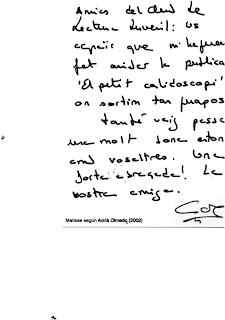 Amics del Club de
Lectura Juvenil: us
agraeix que m'hagueu
fet arribar la publica
'El petit calidoscopi'
on sortim tan guapos
també vaig passar
una molt bona estona
amb vosaltres. Una
forta abraçada! La
vostra amiga.
Matisse según Adrià Olmedo (2002)